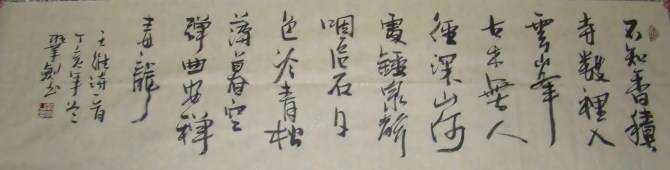 不知香積
寺數裡入
雲峯
古木無人
徑深山何
處鍾泉聲
咽危石日
色冷青松
薄暮空
潭曲安禪
毒龍
王維詩一首
丁亥年冬
书